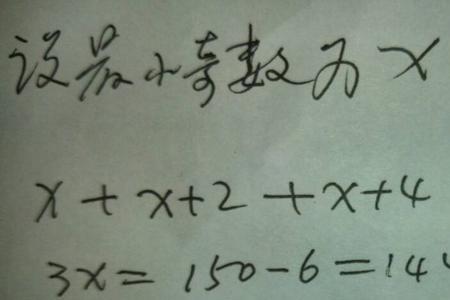 设最小奇数为x
x+x+2+x+4
3x=150-6=14